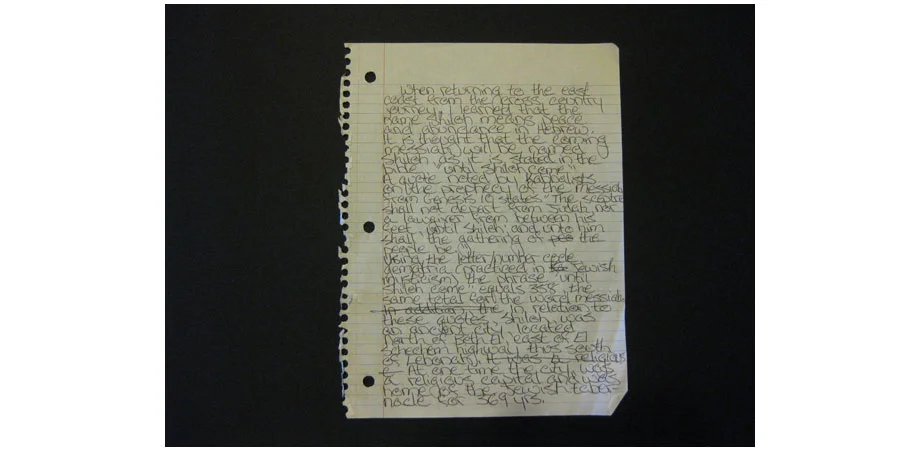 When returning to the east
coast from the cross country
journey, I learned that the
name Shiloh means peace
and abundance in Hebrew.
It is thought that the coming
messiah will be named
Shiloh as it is stated in the
"until Shiloh come".
A quote noted by Kabbalists
on the prophecy of the messiah
from Genesis 10 states "The sceptre
shall not depart from Judah, nor
a lawgiver from between his
feet, until Shiloh; and unto him
shall the gathering of the
people be."
Using the letter/number code
gematria (practiced in Jewish
mysticism) the phrase "until
Shiloh come" equals 358, the
same total for the word messiah.
In addition, the in relation to
these quotes, Shiloh was
an ancient city located
north of Beth El, east of El
Schechem highway, thus south
of Lebonah. It was a religious
At one time the city was
a religious capital and was
home for the Jewish taber-
nacle for 369 yrs.